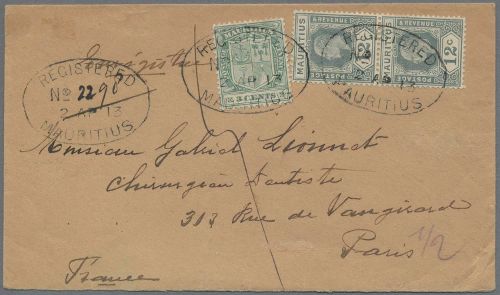 Enregistrée
REGISTERED
No 2298
2 AP 13
MAURITIUS
REGISTERED
AP 13
MAURITIUS
MAURITIUS
3 CENTS
MAURITIUS
& REVENUE
12c
POSTAGE
& REVENUE
12c
POSTAGE
REGISTERED
AP 13
MAURITIUS
Monsieur Gabriel Lionnet
Chirurgien Dentiste
313 Rue de Vaugirard
Paris
1/2
France